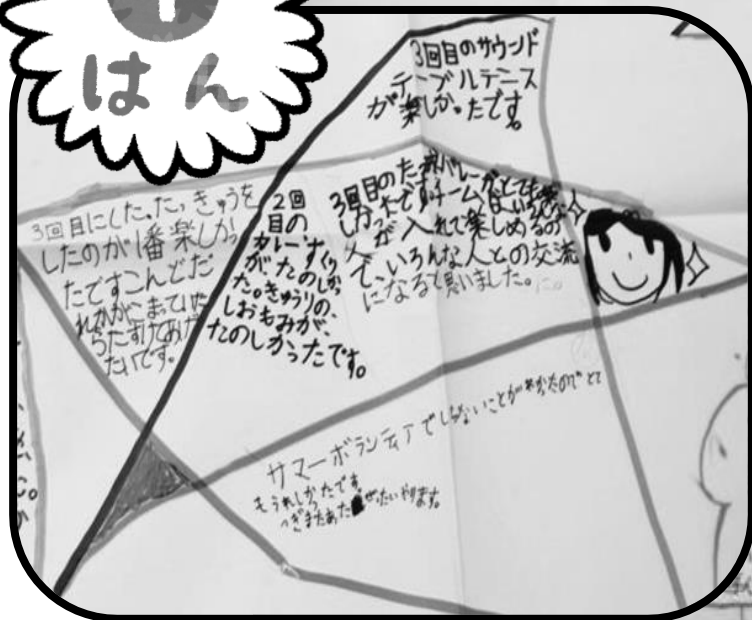 はん
3回目のサウンド
テーブルテニス
が楽しかったです。
3回目にした、たっきゅうを
したのが1番楽しかっ
たですこんどだ
れかがこまっていた
らたすけてあげ
たいです。
2回
目の
カレーずくり
がたのしかっ
た。きゅうりの、
しおもみが、
たのしかったです。
3回目のたっ球バレーがとても楽
しかったですチームは
人が入れて楽しめるの
で、いろんな人との交流
になると思いました。
サマーボランティアでしらないことがわかったのでとて
もうれしかったです。
つぎまたあったらぜったいやります。